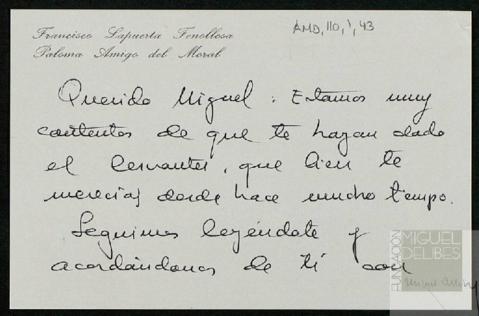 Francisco Lapuerta Fenollosa
Paloma Amigo del Moral
AMD, 110, 1, 43
Querido Miguel: Estamos muy
contentos de que te hayan dado
el Cervantes, que bien te
merecías desde hace mucho tiempo.
Seguimos leyéndote y
acordándonos de ti con
FUNDACIÓN
MIGUEL
DELIBES